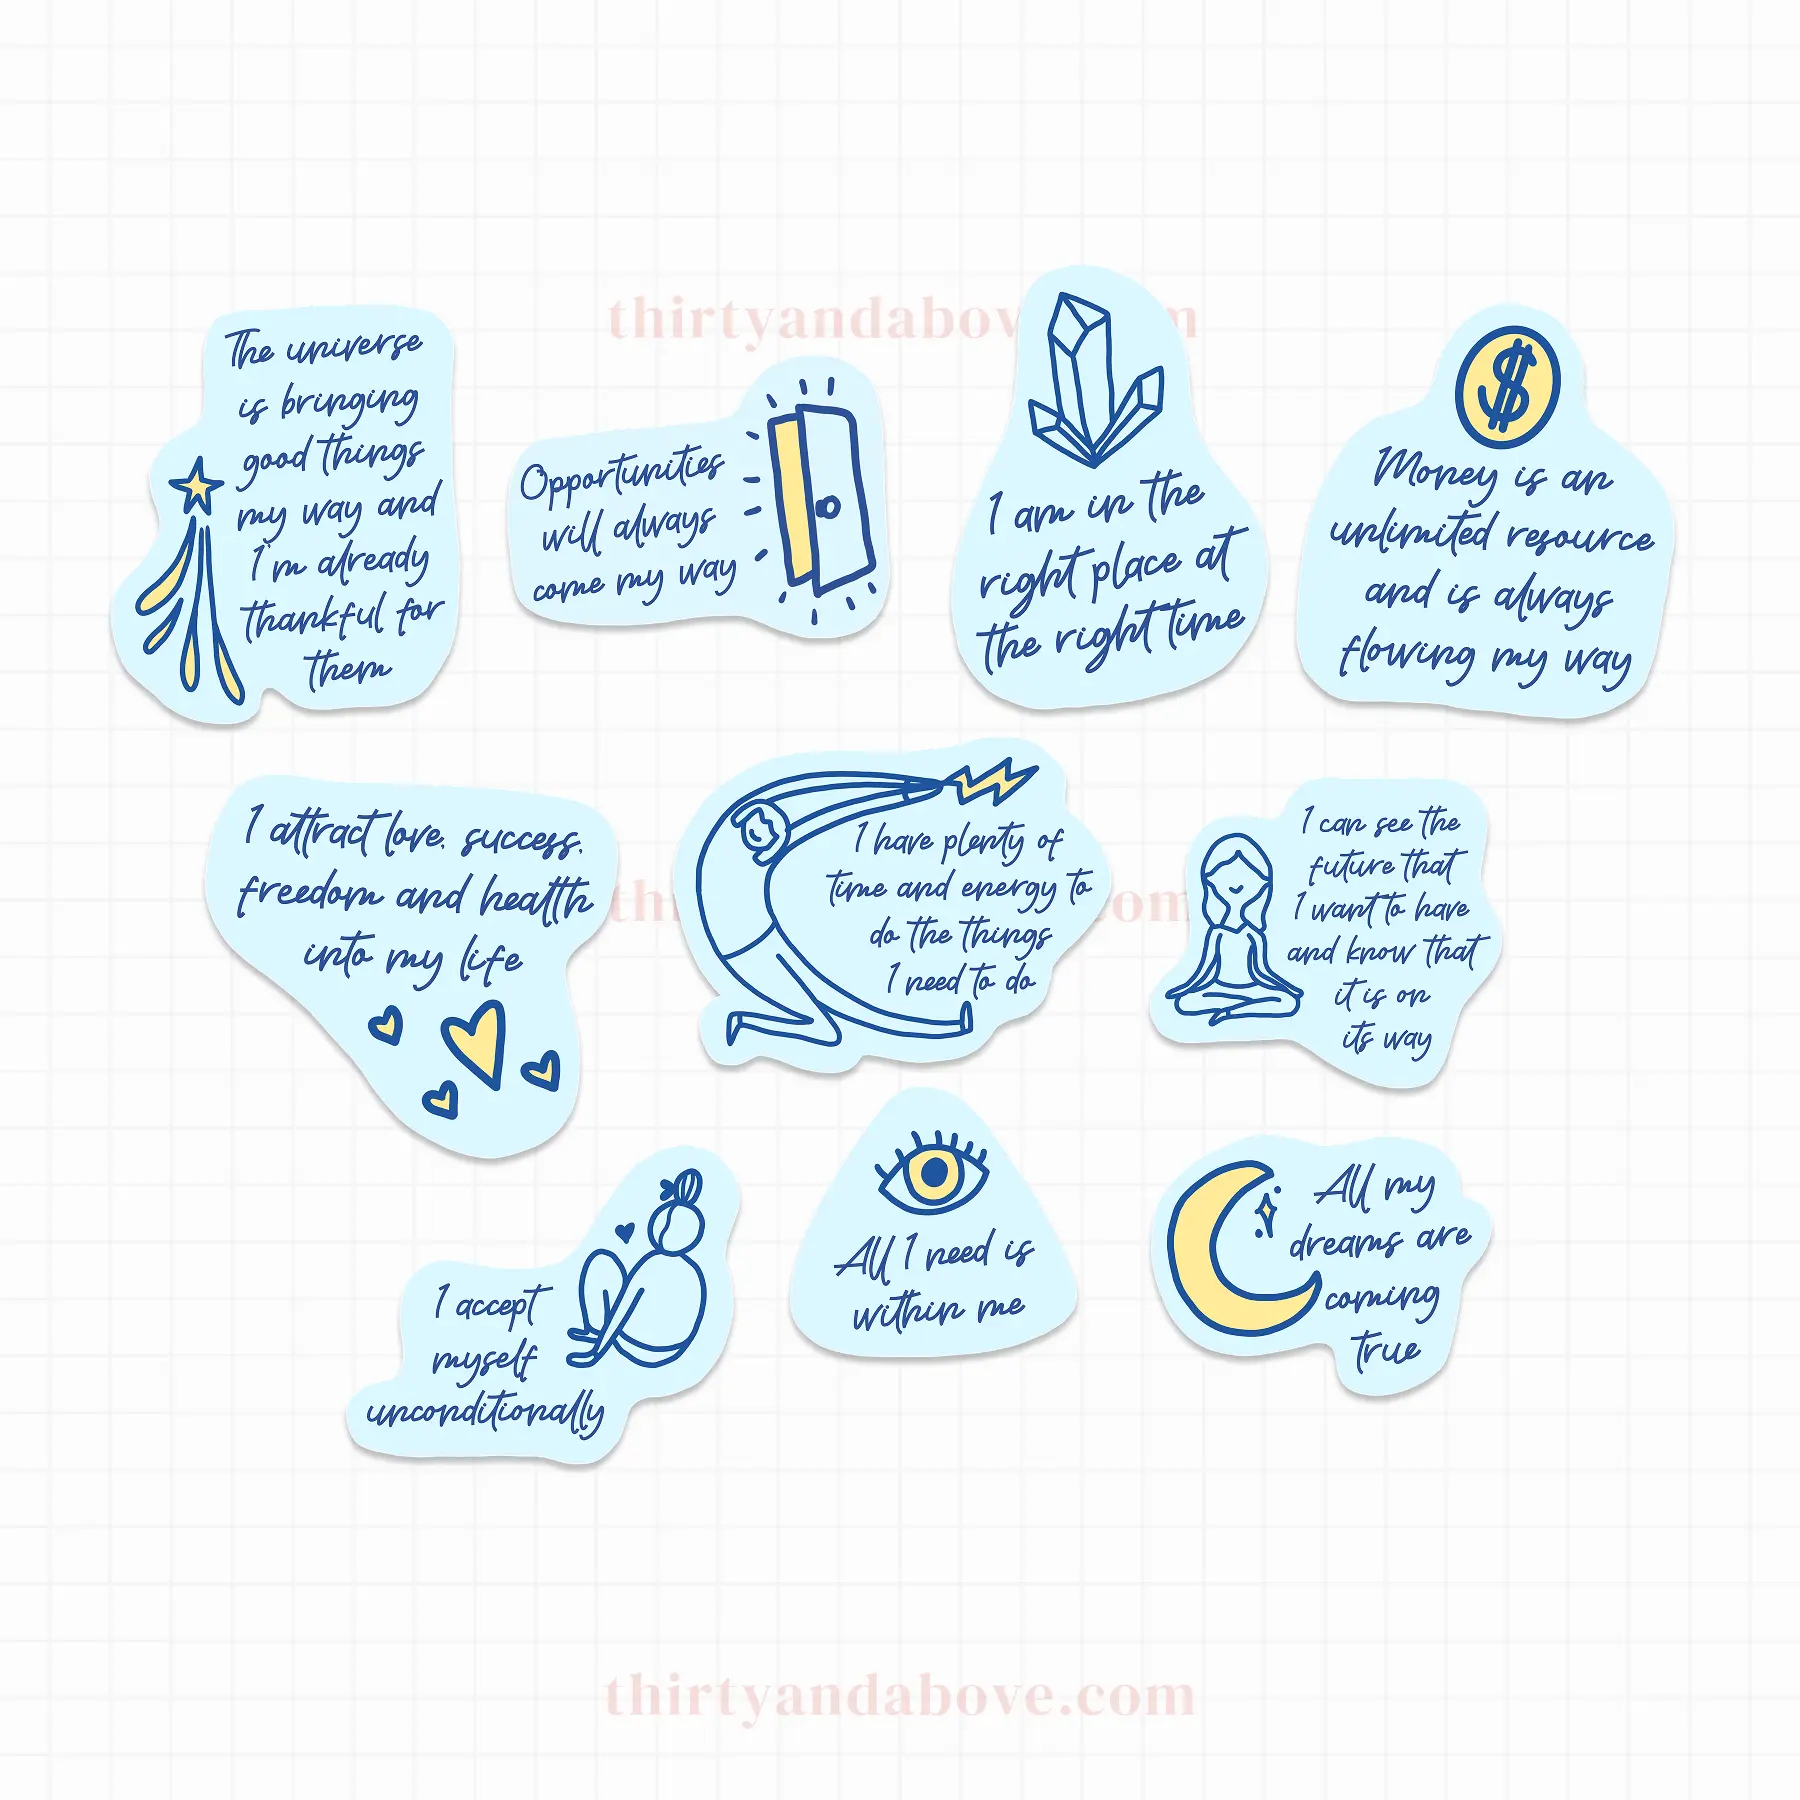 thirtyandabov
m
The universe
is bringing
good things
my way and
I'm already
thankful for
them
Opportunities
will always
come my way
I am in the
right place at
the right time
$
Money is an
unlimited resource
and is always
flowing my way
I attract love, success,
freedom and health
into my life
th
com
I have plenty of
time and energy to
do the things
I need to do
I can see the
future that
I want to have
and know that
it is on
its way
I accept
myself
unconditionally
All I need is
within me
All my
dreams are
coming
true
thirtyandabove.com